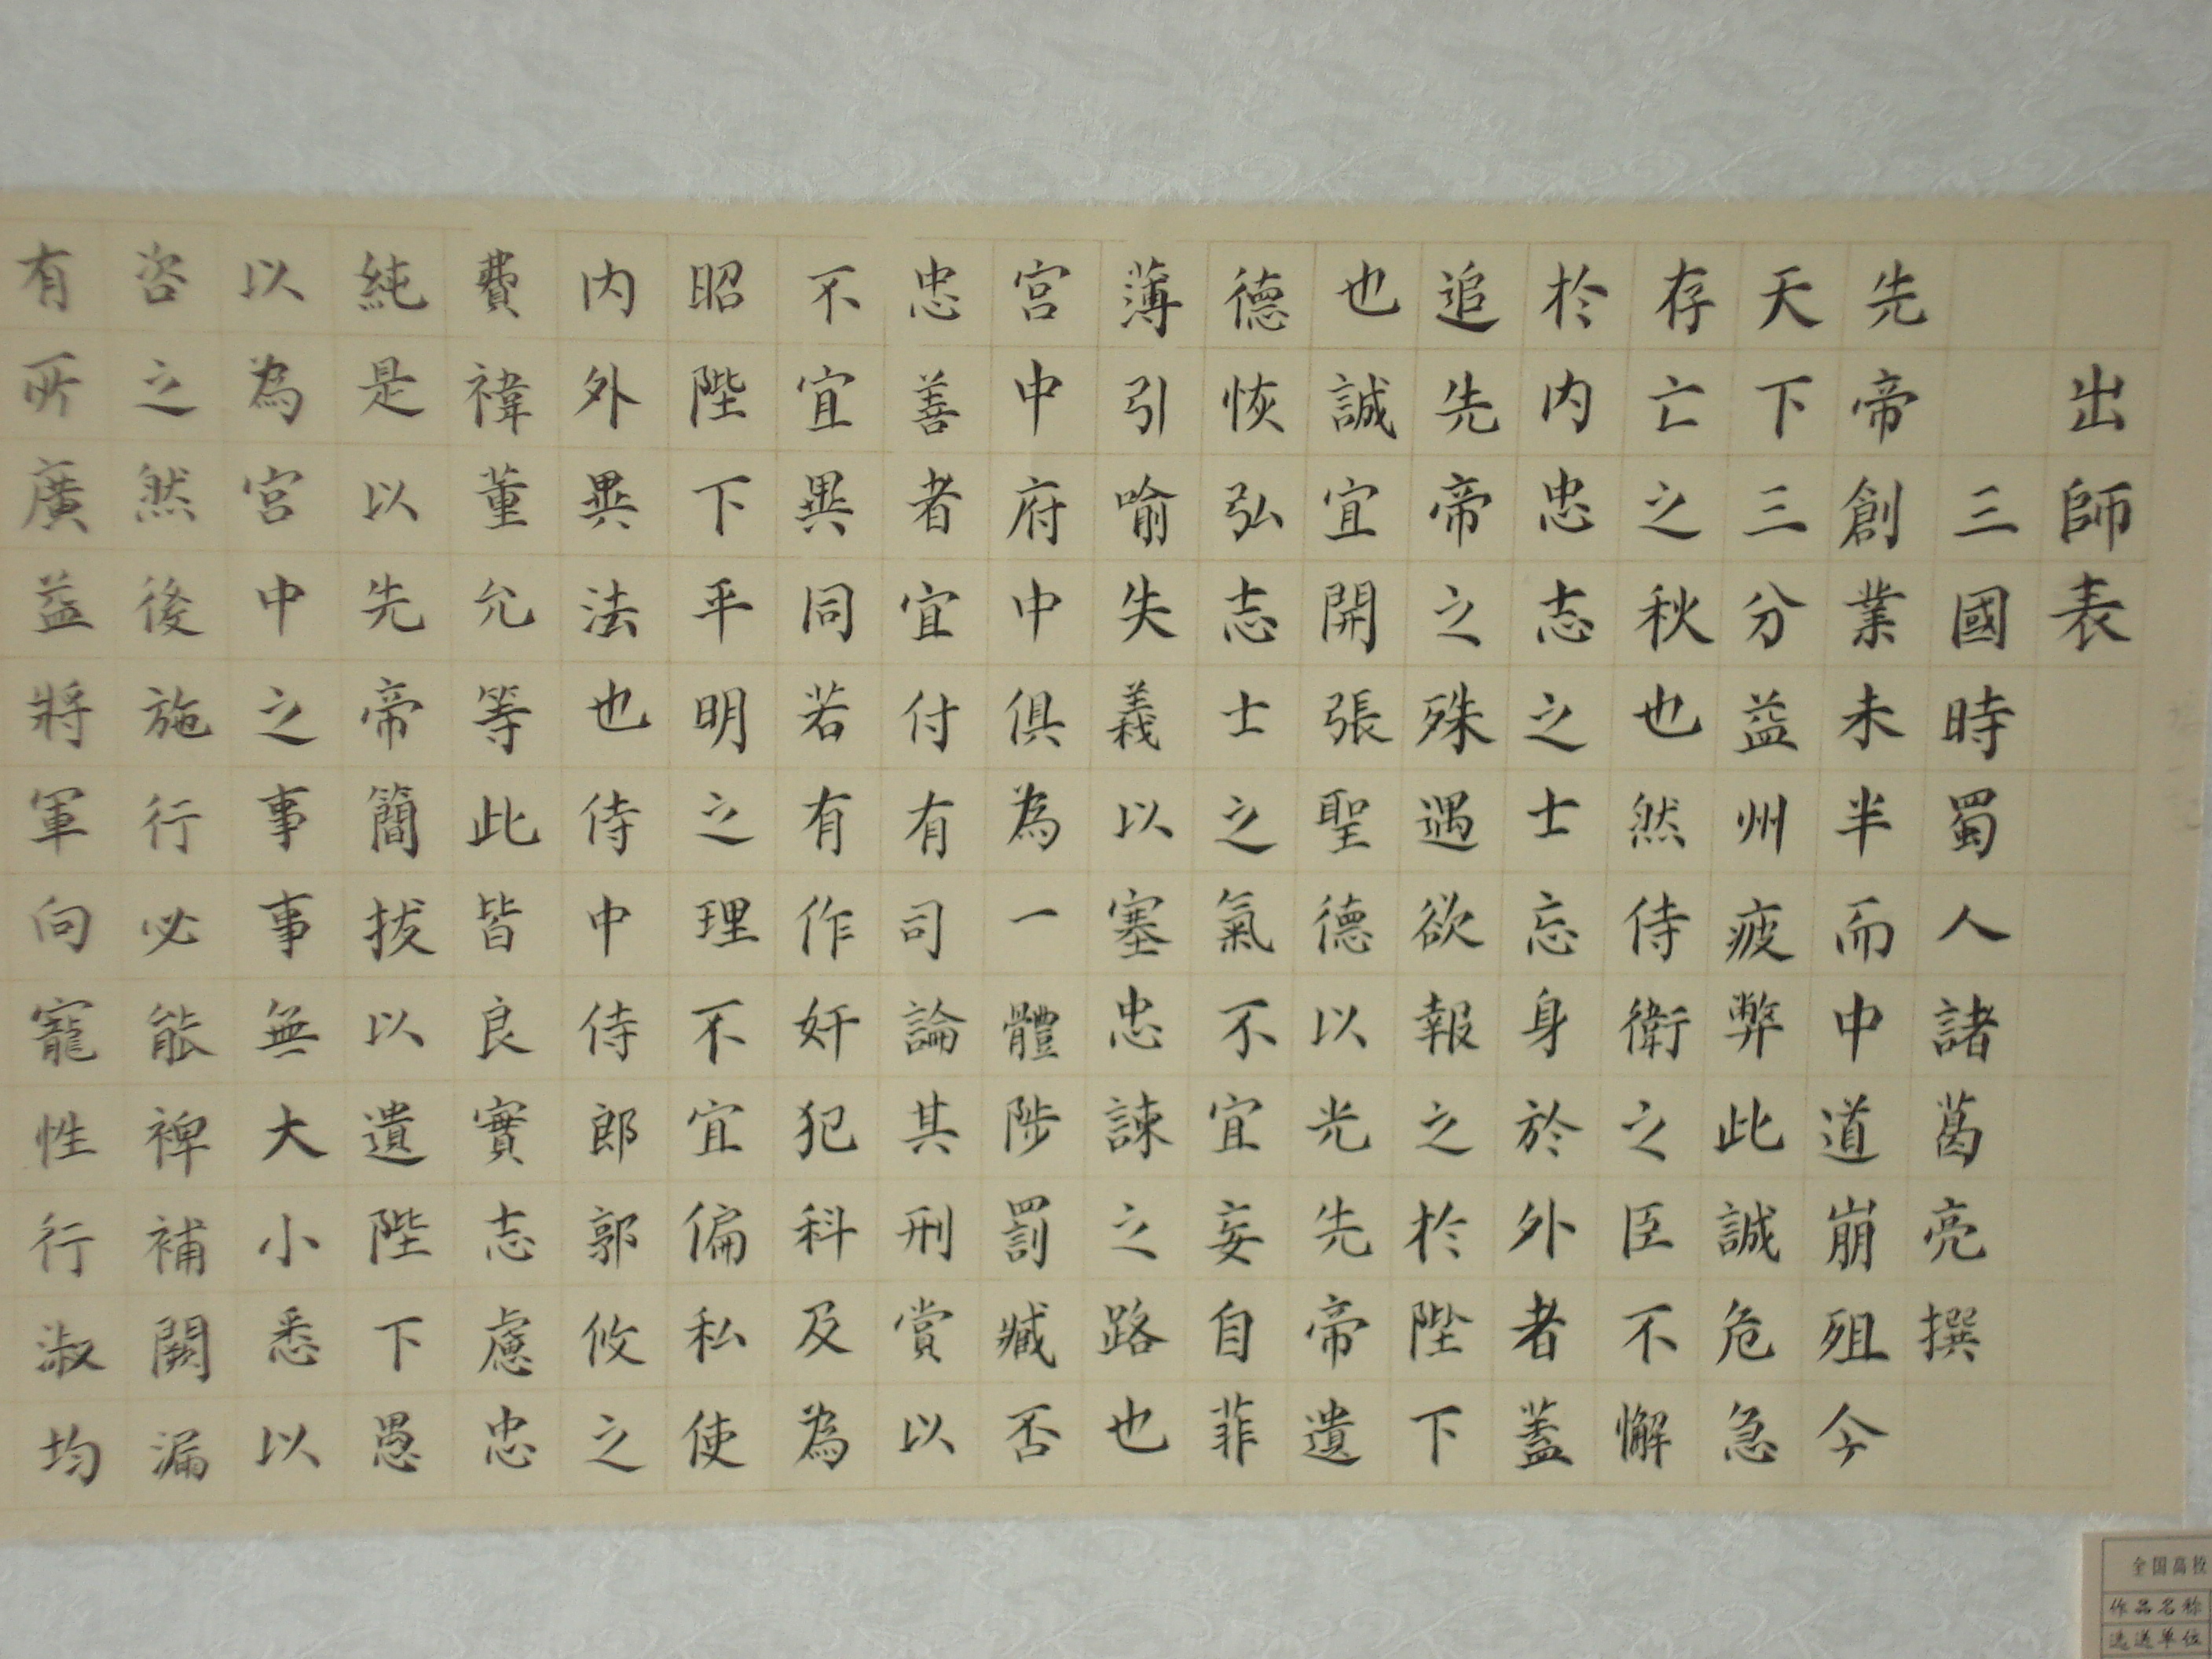 出師表
三國時蜀人諸葛亮撰
先帝創業未半而中道崩殂今
天下三分益州疲弊此誠危急
存亡之秋也然侍衛之臣不懈
於内忠志之士忘身於外者蓋
追先帝之殊遇欲報之於陛下
也誠宜開張聖德以光先帝遺
德恢弘志士之氣不宜妄自菲
薄引喻失義以塞忠諫之路也
宮中府中俱為一體陟罰臧否
忠善者宜付有司論其刑賞以
不宜異同若有作奸犯科及為
昭陛下平明之理不宜偏私使
内外異法也侍中侍郎郭攸之
費禕董允等此皆良實志慮忠
純是以先帝簡拔以遺陛下愚
以為宮中之事事無大小悉以
咨之然後施行必能裨補闕漏
有所廣益將軍向寵性行淑均
全国高校
作品名称
选送单位